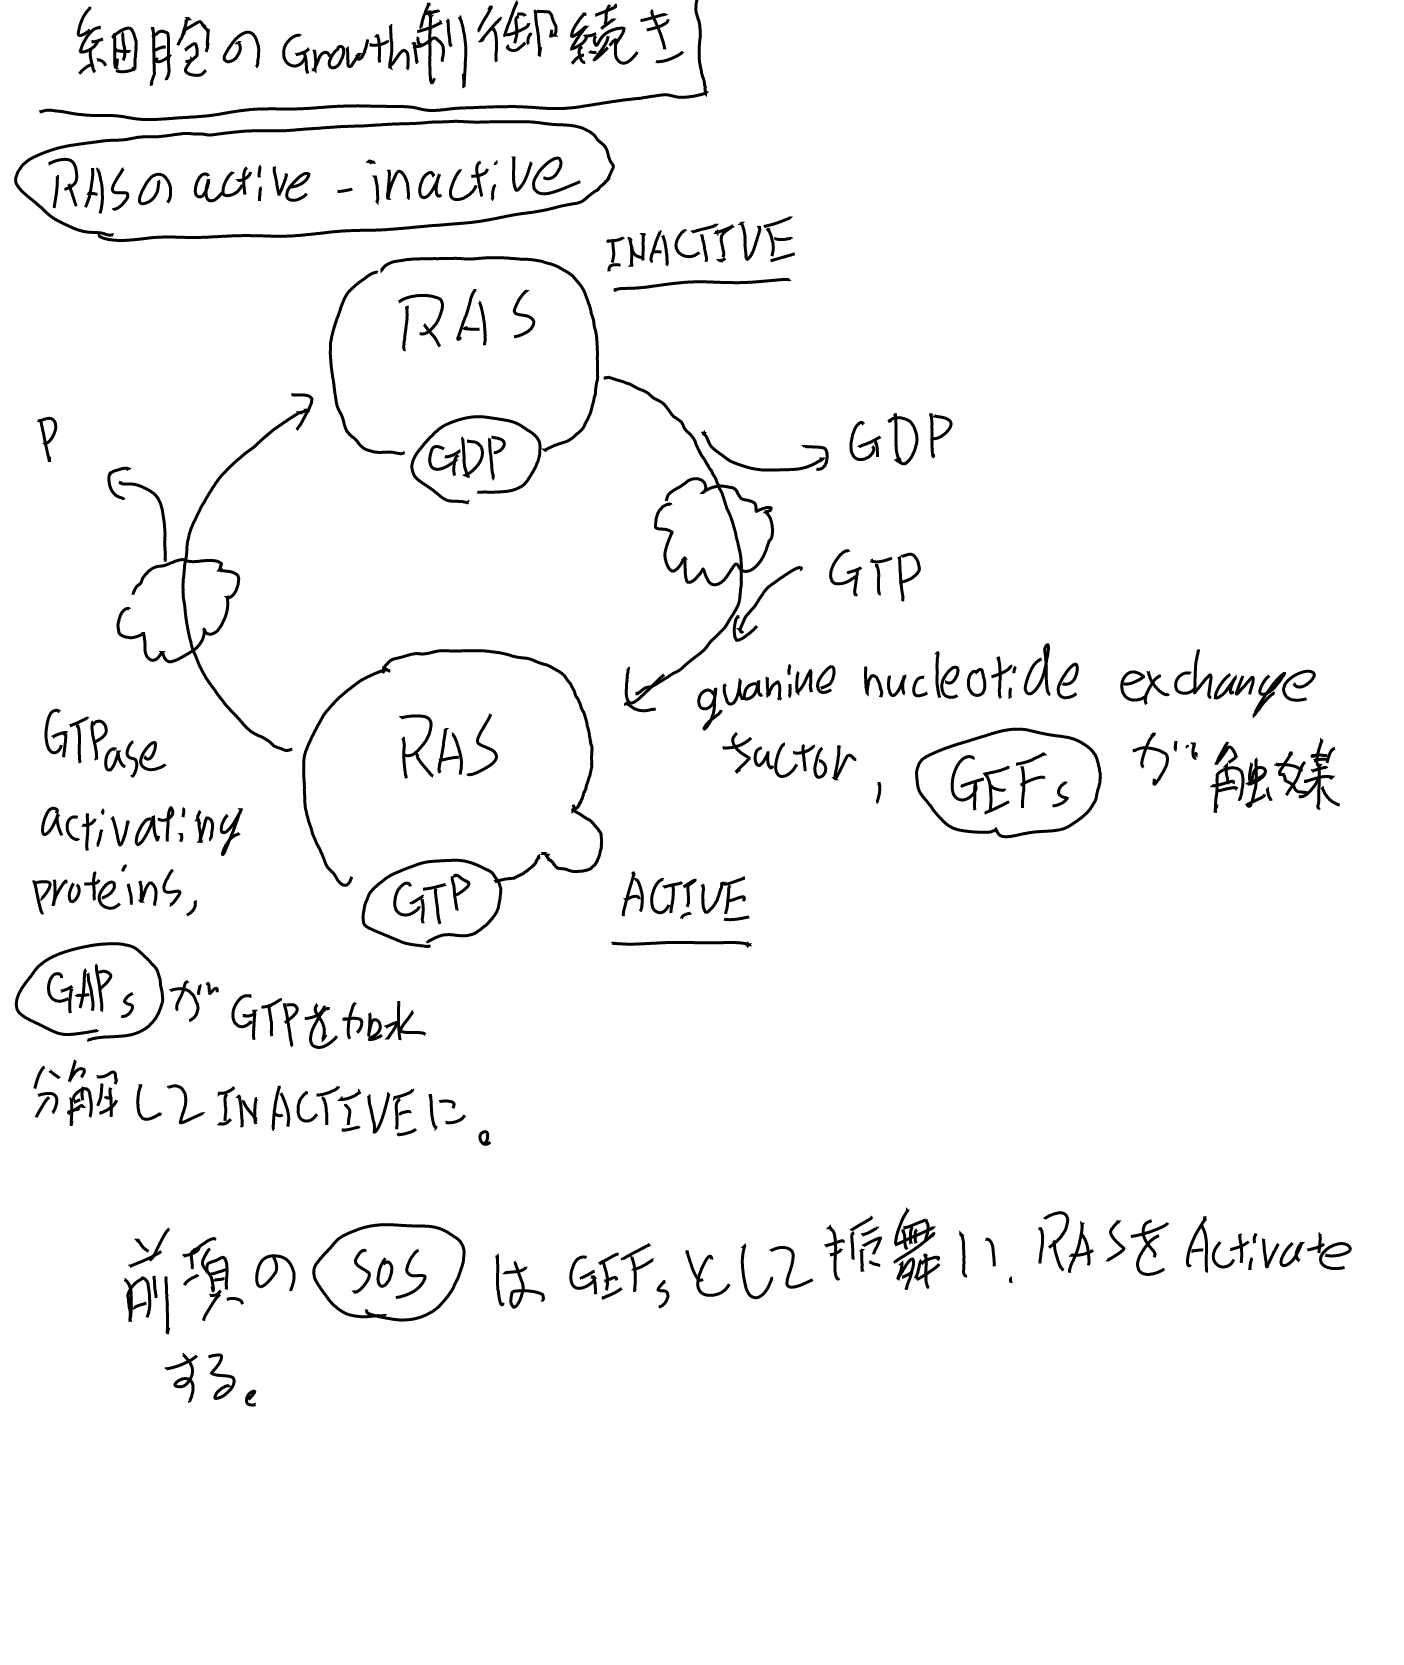 細胞のGrowth制御続き
RASのactive - inactive
INACTIVE
RAS
GDP
P
GDP
GTP
guanine nucleotide exchange
factor, GEFs が触媒
RAS
GTP
ACTIVE
GTPase
activating
proteins,
GAPs が GTPを加水
分解してINACTIVEに。
前項の SOS は GEFsとして振舞い、RASを Activate
する。